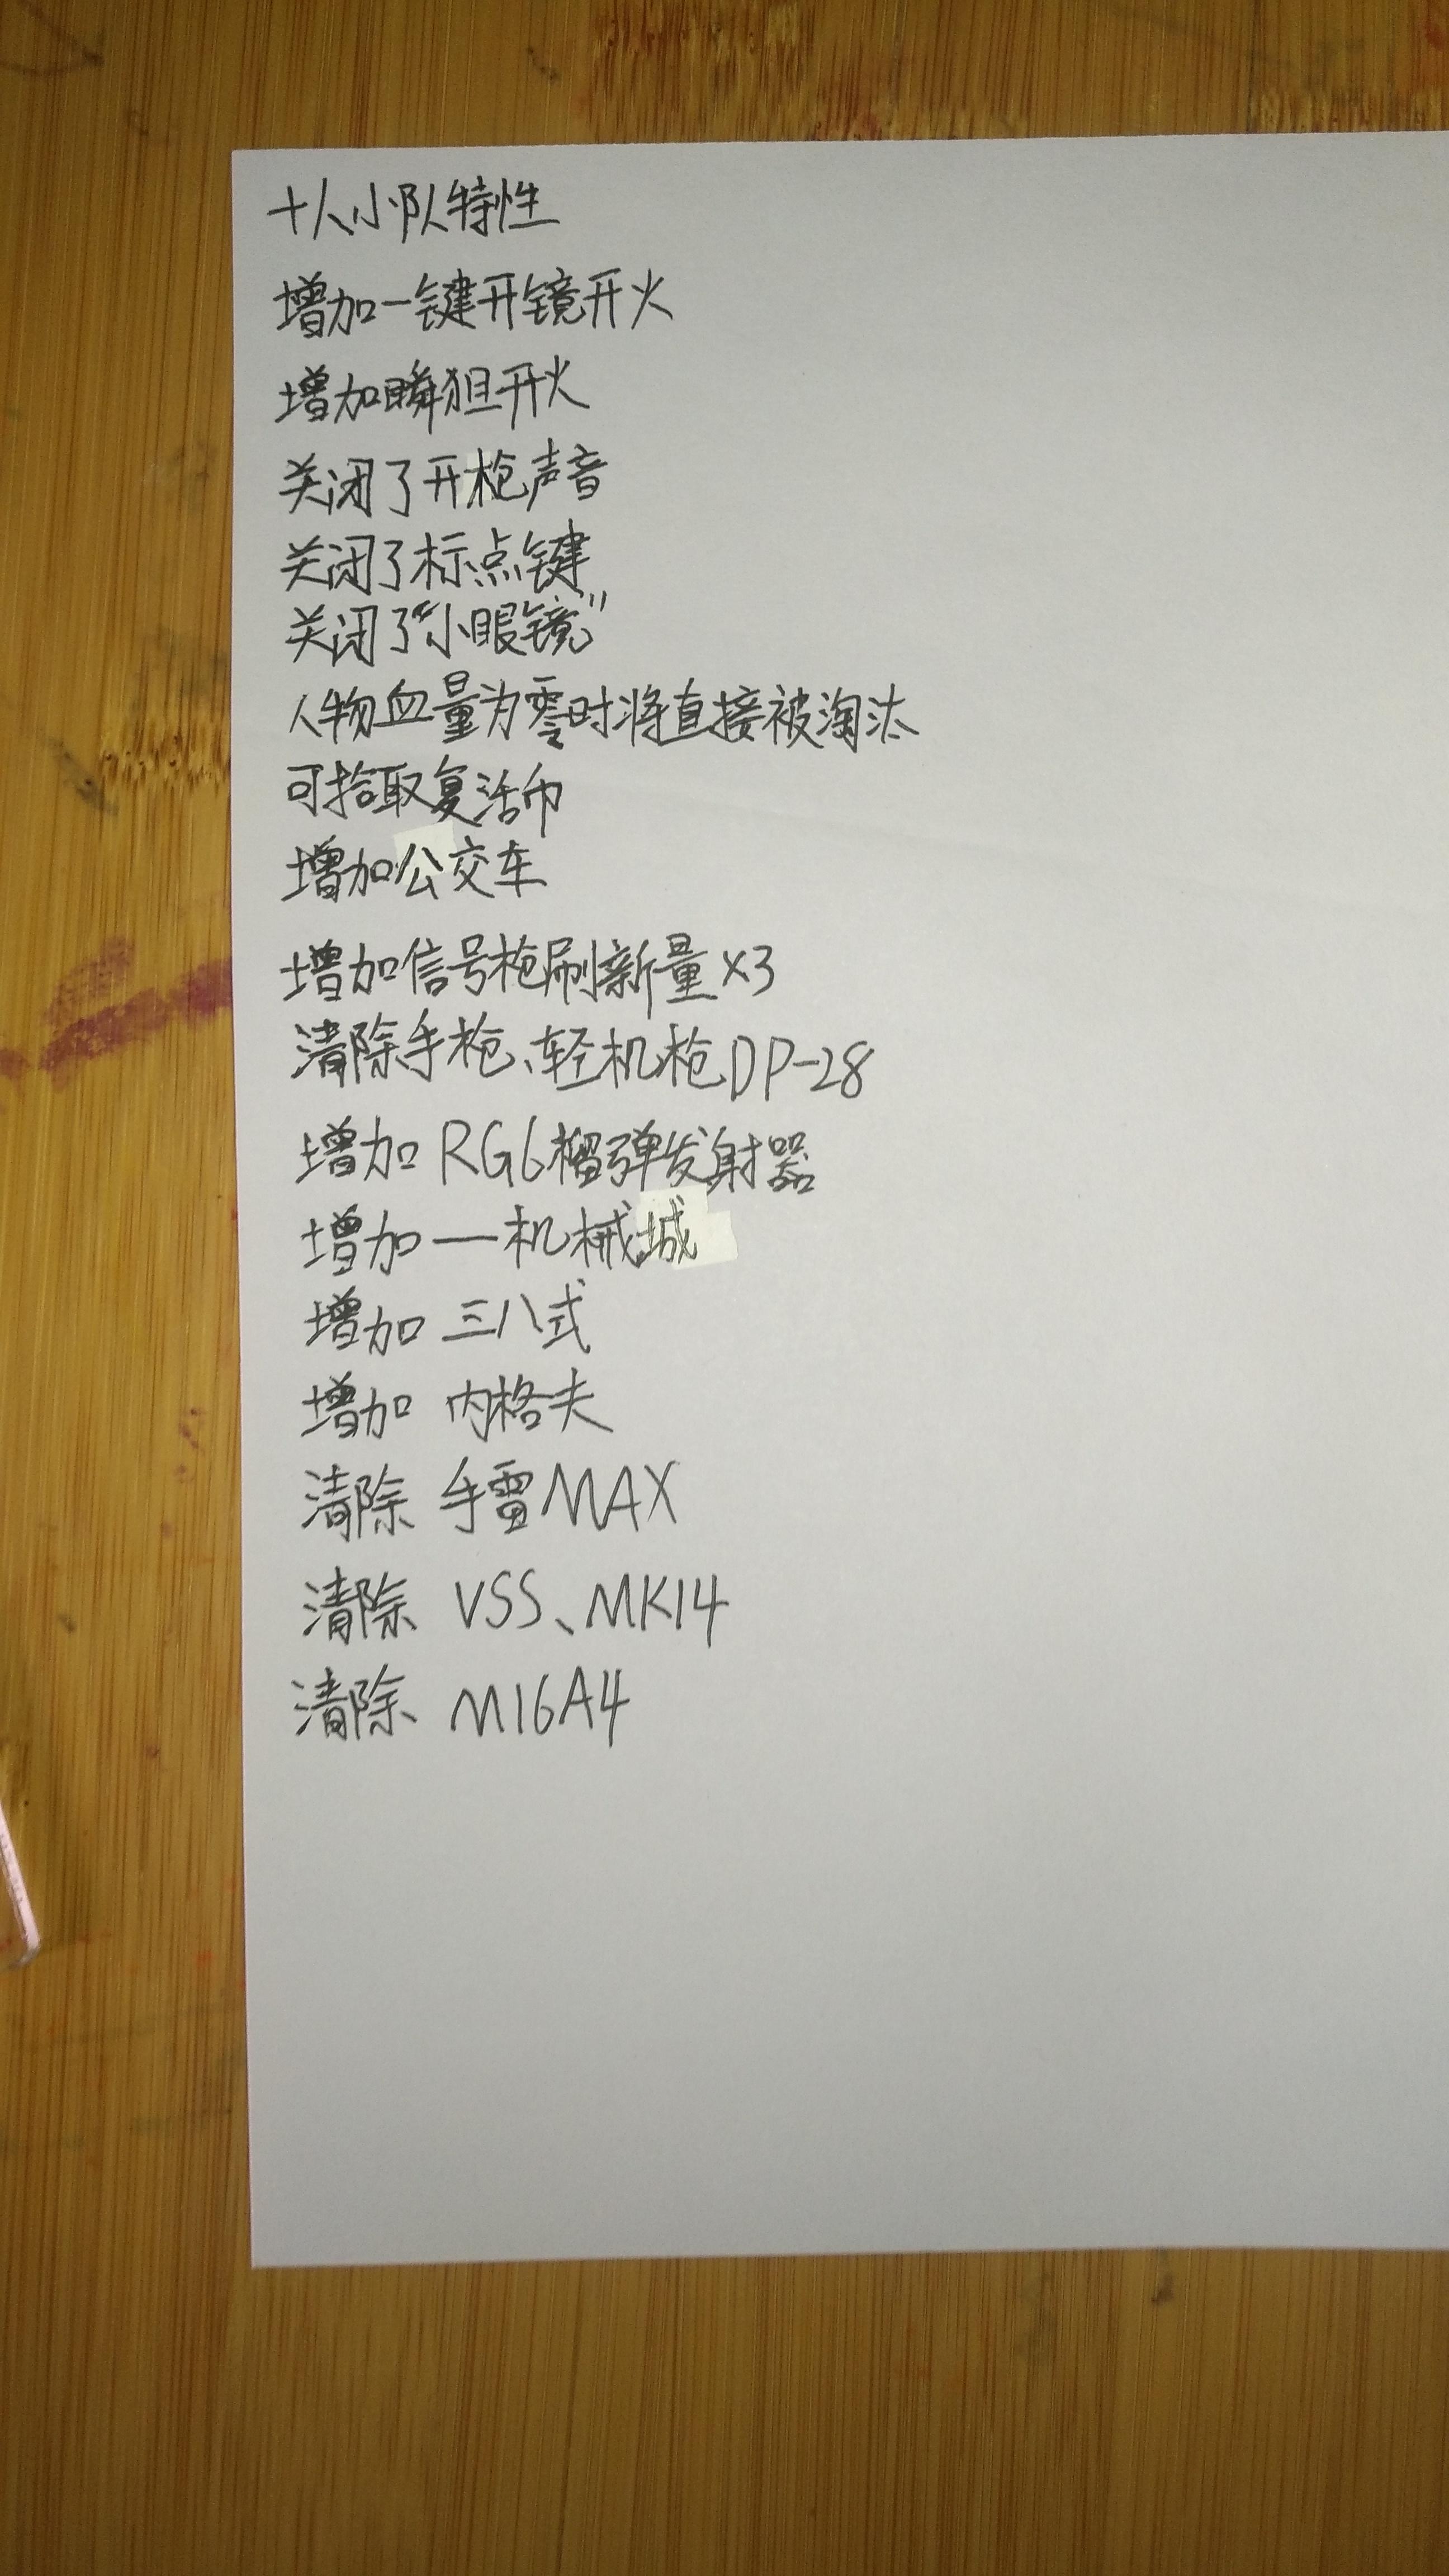 十人小队特性
增加一键开镜开火
增加瞬狙开火
关闭了开枪声音
关闭了标点键
关闭了“小眼镜”
人物血量为零时将直接被淘汰
可拾取复活币
增加公交车
增加信号枪刷新量×3
清除手枪、轻机枪DP-28
增加 RG6榴弹发射器
增加—机械城
增加 三八式
增加 内格夫
清除 手雷MAX
清除 VSS、MK14
清除 M16A4